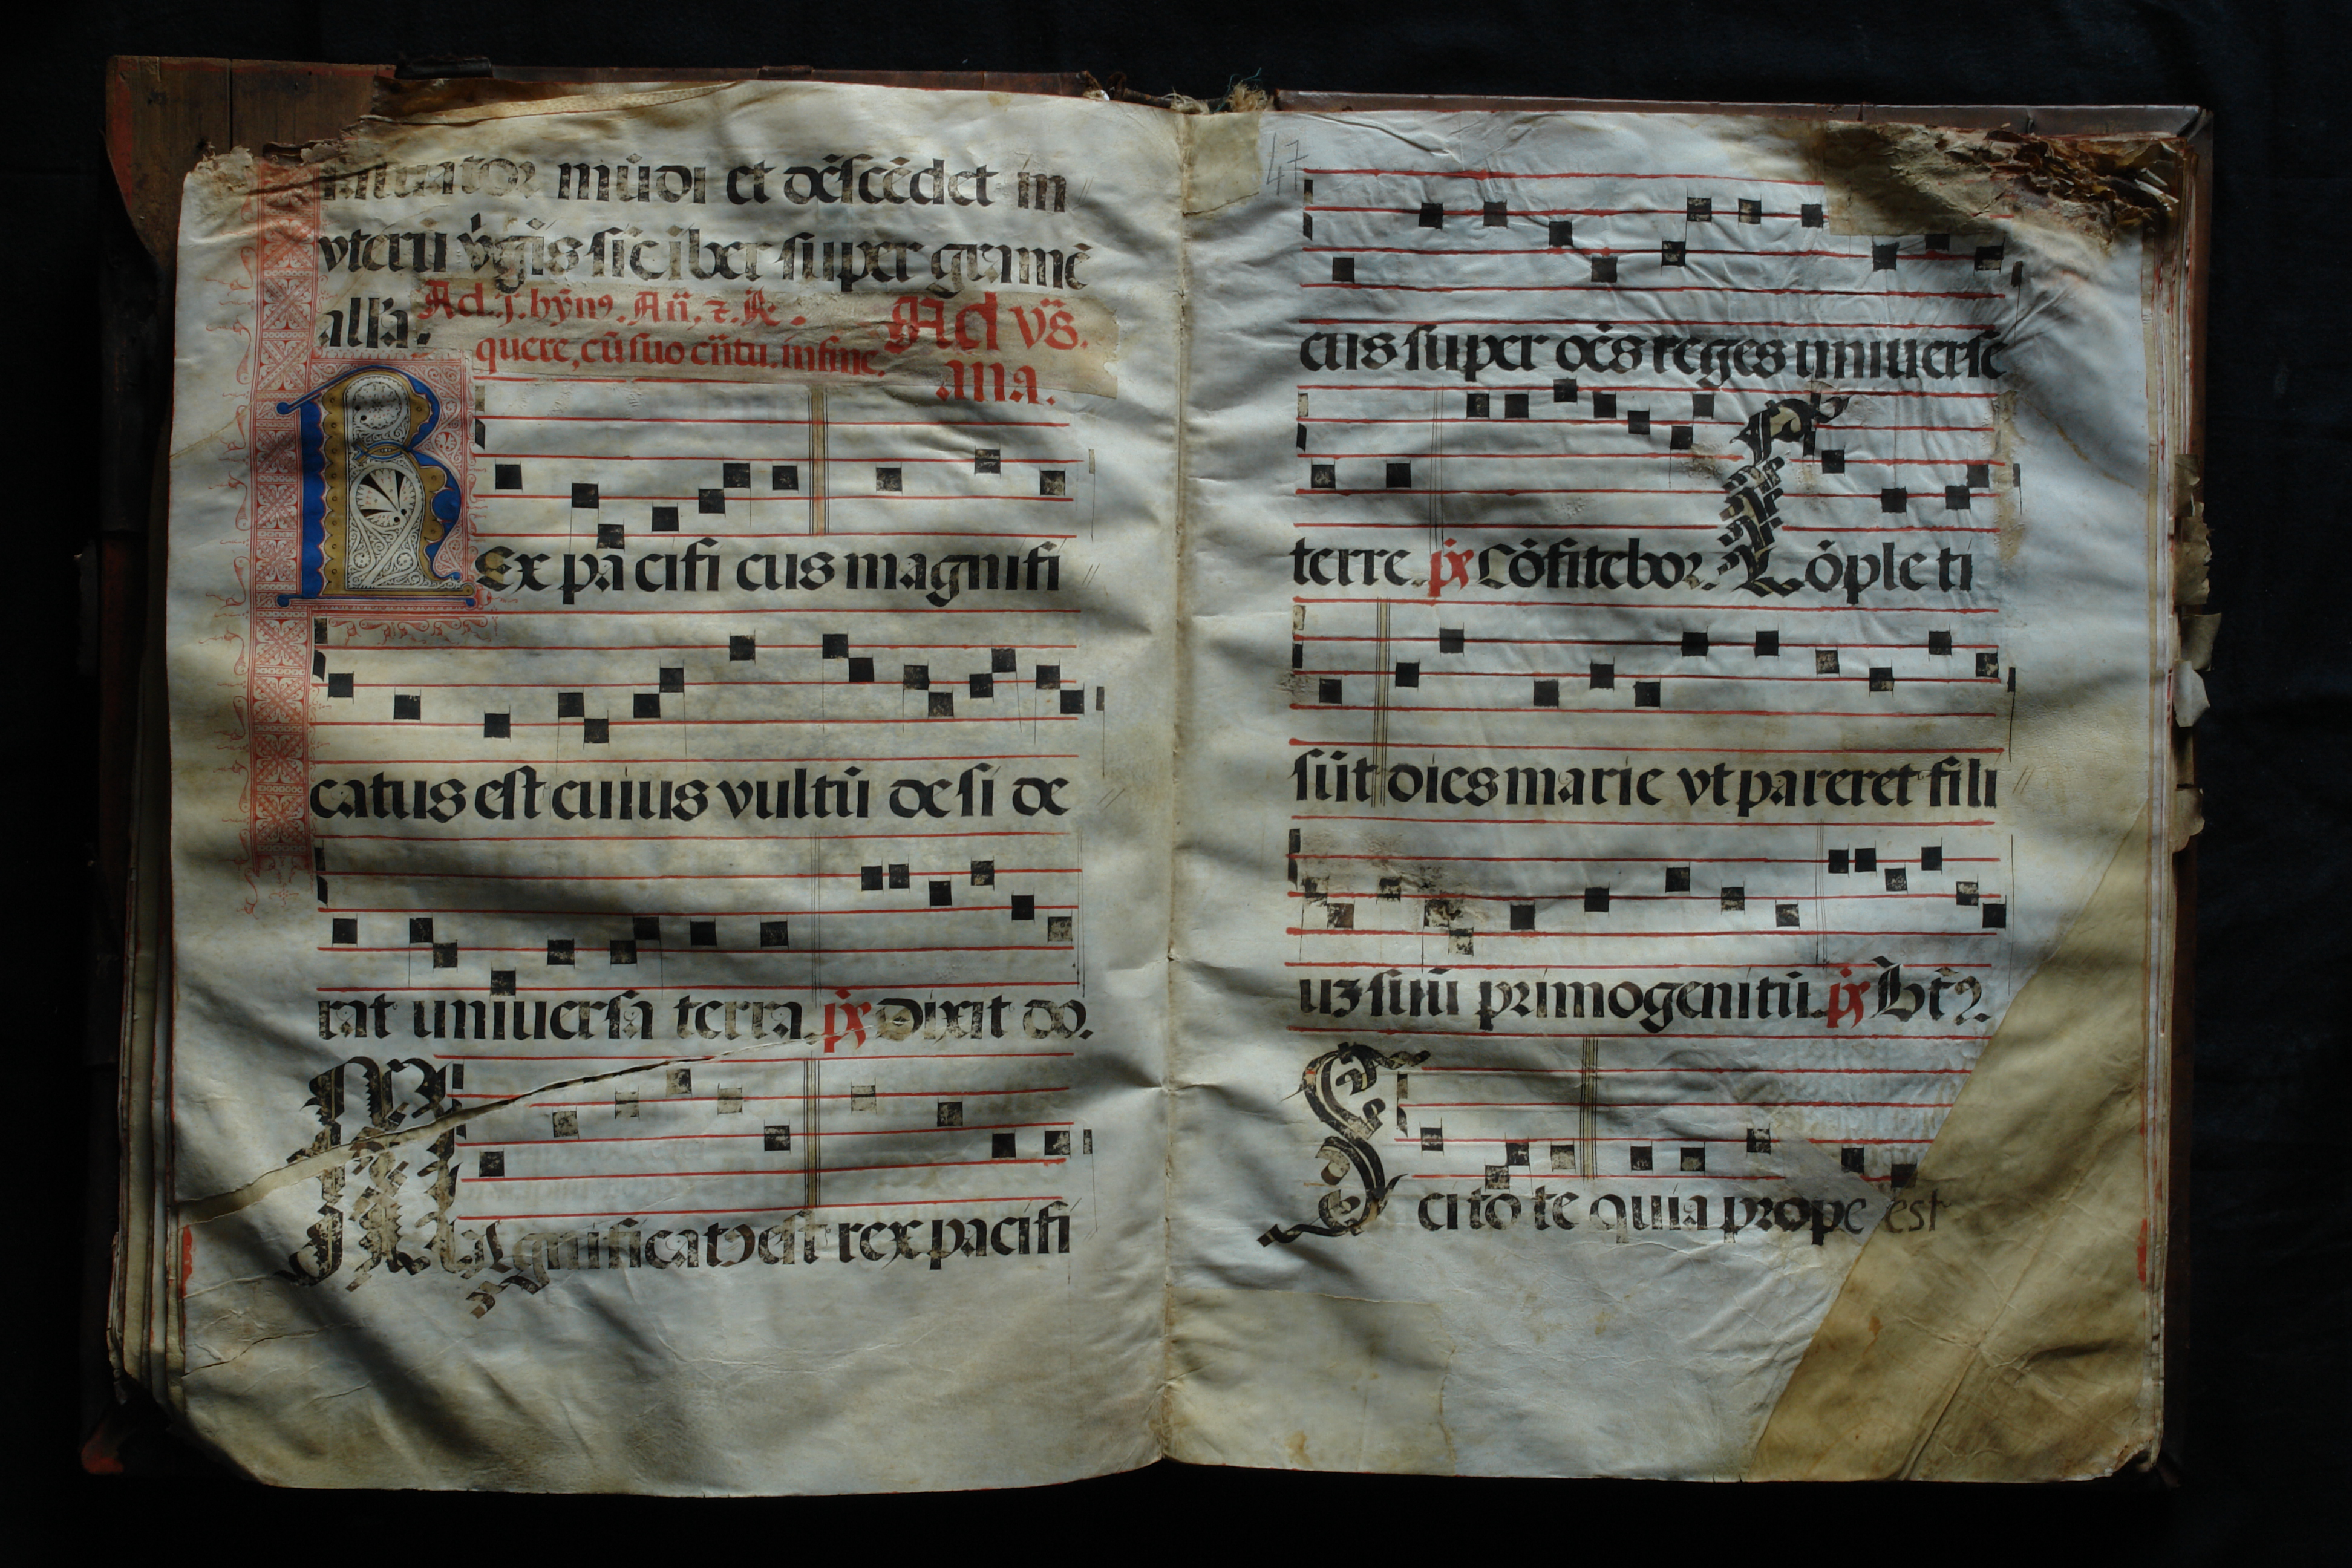 mūdi et dēscēdet in
vterū v̄gīs sic iber super gramē
all'a. Ad .j. hym⁹. Añ. ⁊. R̃. Ad vs̃.
quere, cū suo cātu. in fine. ana.
REx pa cifi cus magnifi
catus est cuius vultū de si de
rat uniuersa terra. p̃s Dixit do.
MAgnificatꝰ est rex pacifi
47
cus super oēs reges uniuerse
terre. p̃s Cōfitebor. Cōple ti
sūt dies marie vt pareret fili
uz suū primogenitū. p̃s
Sci to te quia prope est